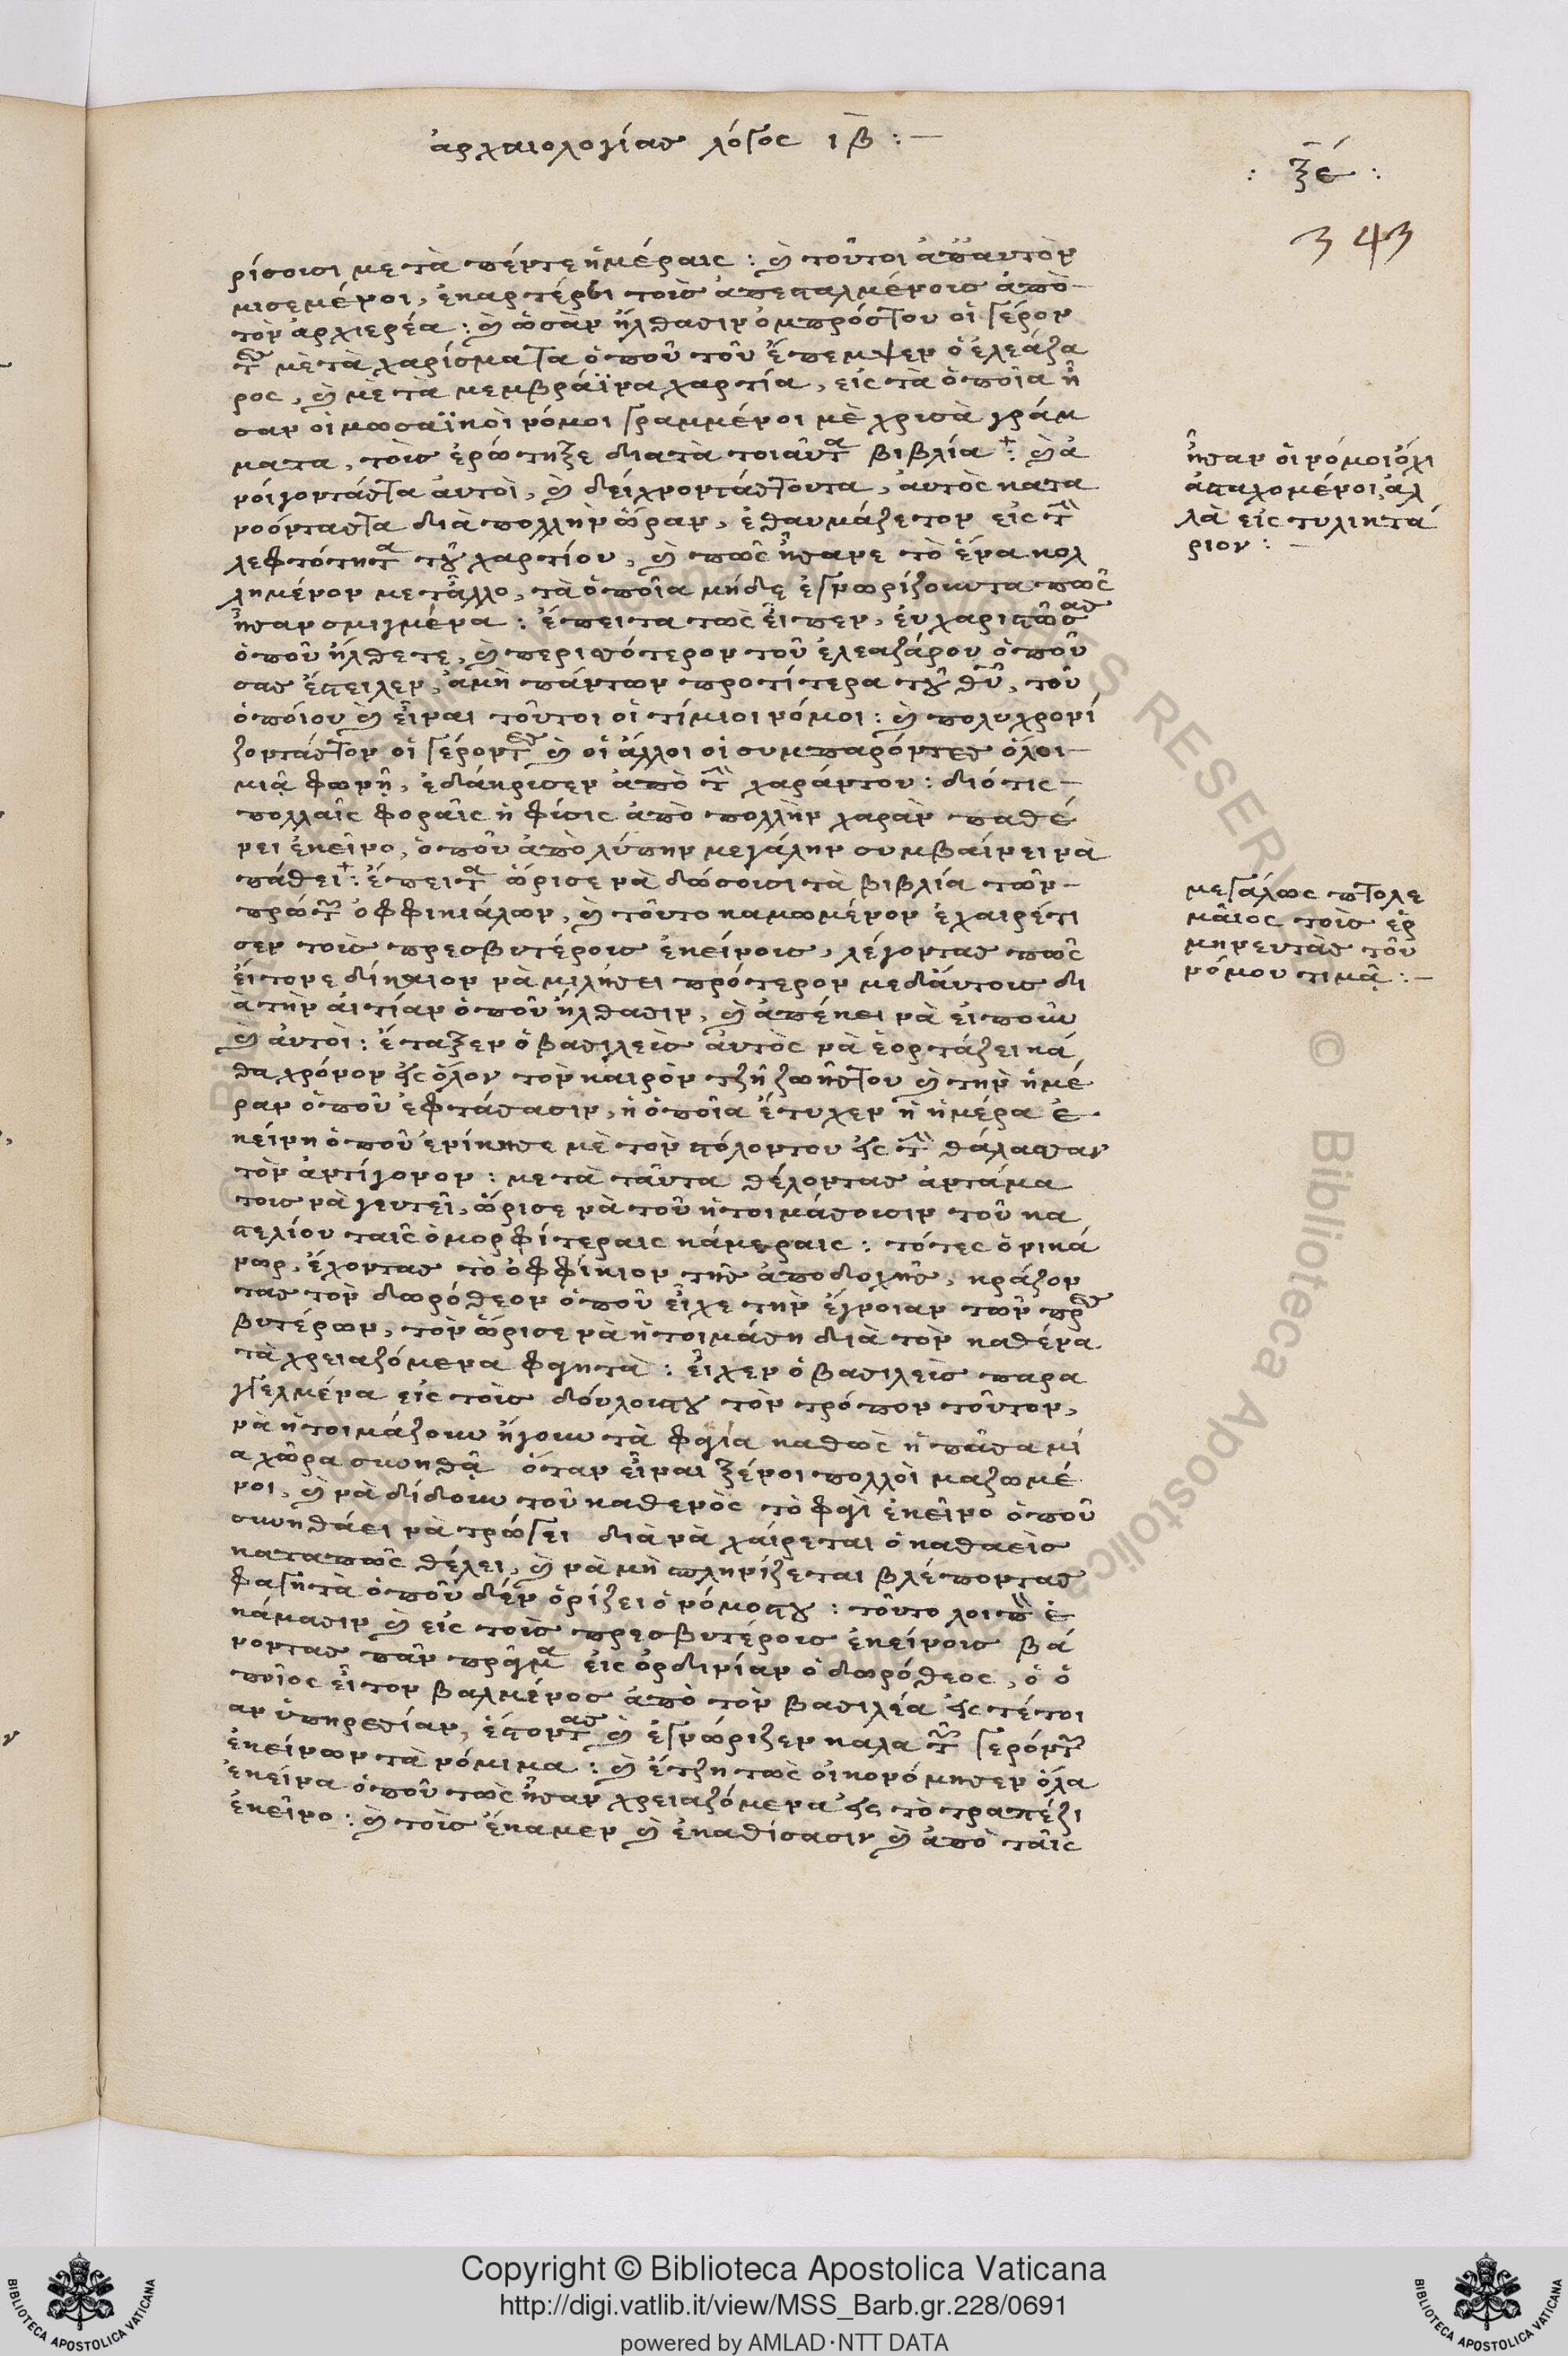 ἀρχαιολογίας λόγος ιβ :—
: ξέ :
343
ρίσοισι μετὰ πέντε ἡμέραις : καὶ τοῦτοι ἀπ' αυτὸν
μισεμένοι, ἐκαρτέρει τοῖς ἀπεσταλμένοις ἀπὸ
τὸν ἀρχιερέα : καὶ ὡσὰν ἤλθασιν ὀμπρόστου οἱ γέρον
τ μὲ τὰ χαρίσματα ὁποῦ τοῦ ἔπεμψεν ὁ ἐλεάζα
ρος, καὶ μὲ τὰ μεμβράϊνα χαρτία, εἰς τὰ ὁποῖα ἦ
σαν οἱ μωσαϊκοὶ νόμοι γραμμένοι μὲ χρισὰ γράμ
ματα, τοῖς ἐρώτηξε διατὰ τοιαῦτα βιβλία + : καὶ ἀ
νοίγοντάστα ἀυτοὶ, καὶ δείχνοντάστουτα, ἀυτὸς κατα
νοόντασTα διὰ πολλὴν ὥραν, ἐθαυμάζετον εἰς τὴν
λεφτότητα τοῦ χαρτίου, καὶ πῶς ἤσανε τὸ ἕνα κολ
λημένον μετἄλλο, τὰ ὁποῖα μήδε ἐγνωρίζουντα πῶς
ἦσαν σμιγμένα : ἔπειτα τῶς εἶπεν, ἐυχαριστῶ σας
ὁποῦ ἤλθετε, καὶ περισσότερον τοῦ ἐλεαζάρου ὁποῦ
σας ἔστειλεν, ἀμὴ πάντων προτίτερα τοῦ θῦ, τοῦ
ὁποίου καὶ εἶναι τοῦτοι οἱ τίμιοι νόμοι : καὶ πολυχρονί
ζοντάστον οἱ γέροντες καὶ οἱ ἄλλοι οἱ συμπαρόντες ὅλοι
μιᾷ φωνῇ, ἐδάκρισεν ἀπὸ τὴν χαράντου : διότις
πολλαῖς φοραῖς ἡ φίσις ἀπὸ πολλὴν χαρὰν παθέ
νει ἐκεῖνο, ὁποῦ ἀπὸ λύπην μεγάλην συμβαίνει νὰ
πάθει + : ἔπειτα ὥρισε νὰ δώσοισι τὰ βιβλία τῶν
πρώτ ὀφφικιάλων, καὶ τοῦτο καμωμένον ἐχαιρέτι
σεν τοῖς πρεσβυτέροις ἐκείνοις, λέγοντας πῶς
εἴτονε δίκαιον νὰ μιλήσει πρότερον μεδἄυτοις δι
ὰ τὴν ἀιτίαν ὁποῦ ἤλθασιν, καὶ ἀπέκει νὰ εἰποῦν
καὶ ἀυτοὶ : ἔταξεν ὁ βασιλεὶς ἀυτὸς νὰ ἑορτάζει κά
θα χρόνον εἰς ὅλον τὸν καιρὸν τζῆ ζωῆστου καὶ τὴν ἡμέ
ραν ὁποῦ ἐφτάσασιν, ἡ ὁποῖα ἔτυχεν ἡ ἡμέρα ἐ
κείνη ὁποῦ ἐνίκησε μὲ τὸν στόλοντου εἰς τὴν θάλασσαν
τὸν ἀντίγονον : μετὰ ταῦτα θέλοντας ἀντάμα
τοις νὰ γευτεῖ, ὥρισε νὰ τοῦ ἡτοιμάσοισιν τοῦ κα
στελίου ταῖς ὀμορφίτεραις κάμεραις : τότες ὁ νικά
νωρ, ἔχοντας τὸ ὀφφίκιον τῆς ἀποδοχῆς, κράζον
τας τὸν δωρόθεον ὁποῦ εἶχε τὴν ἔγνοιαν τῶν πρεσ
βυτέρων, τὸν ὥρισε νὰ ἡτοιμάση διὰ τὸν καθένα
τὰ χρειαζόμενα φαητὰ : εἶχεν ὁ βασιλεὶς παρα
γγελμένα εἰς τοῖς δούλοιςτου τὸν τρόπον τοῦτον,
νὰ ἡτοιμάζουν ἤγουν τὰ φαγία καθὼς ἡ πᾶσα μί
α χώρα συνηθᾷ ὅταν εἶναι ξένοι πολλοὶ μαζωμέ
νοι, καὶ νὰ δίδουν τοῦ καθενὸς τὸ φαγὶ ἐκεῖνο ὁποῦ
συνηθάει νὰ τρώγει διὰ νὰ χαίρεται ὁ καθαεὶς
καταπῶς θέλει, καὶ νὰ μὴ πληρίζεται βλέποντας
φαγητὰ ὁποῦ δὲν ὁρίζει ὁ νόμοςτου : τοῦτο λοιπὸν ἐ
κάμασιν καὶ εἰς τοῖς πρεσβυτέροις ἐκείνοις βά
νοντας πᾶν πρᾶγμα εἰς ὀρδινίαν ὁ δωρόθεος, ὁ ὁ
ποῖος εἶτον βαλμένος ἀπὸ τὸν βασιλέα εἰς τέτοι
αν ὑπηρεσίαν, ἑστοντας καὶ ἐγνώριζεν καλὰ τῶν γερόντων
ἐκείνων τὰ νόμιμα : καὶ ἔτζη τῶς οἰκονόμησεν ὅλα
ἐκείνα ὁποῦ τῶς ἦσαν χρειαζόμενα εἰς τὸ τραπέζι
ἐκεῖνο : καὶ τοῖς ἔκαμεν καὶ ἐκαθίσασιν καὶ ἀπὸ ταῖς
ἦσαν οἱ νόμοι ὄχι
ἀσταχομένοι, ἀλ
λὰ εἰς τυλιητά
ριον : —
μεγάλως πτολε
μᾶιος τοῖς ἑρ
μηνευτὰς τοῦ
νόμου τιμᾷ : —
Copyright © Biblioteca Apostolica Vaticana
http://digi.vatlib.it/view/MSS_Barb.gr.228/0691
powered by AMLAD·NTT DATA